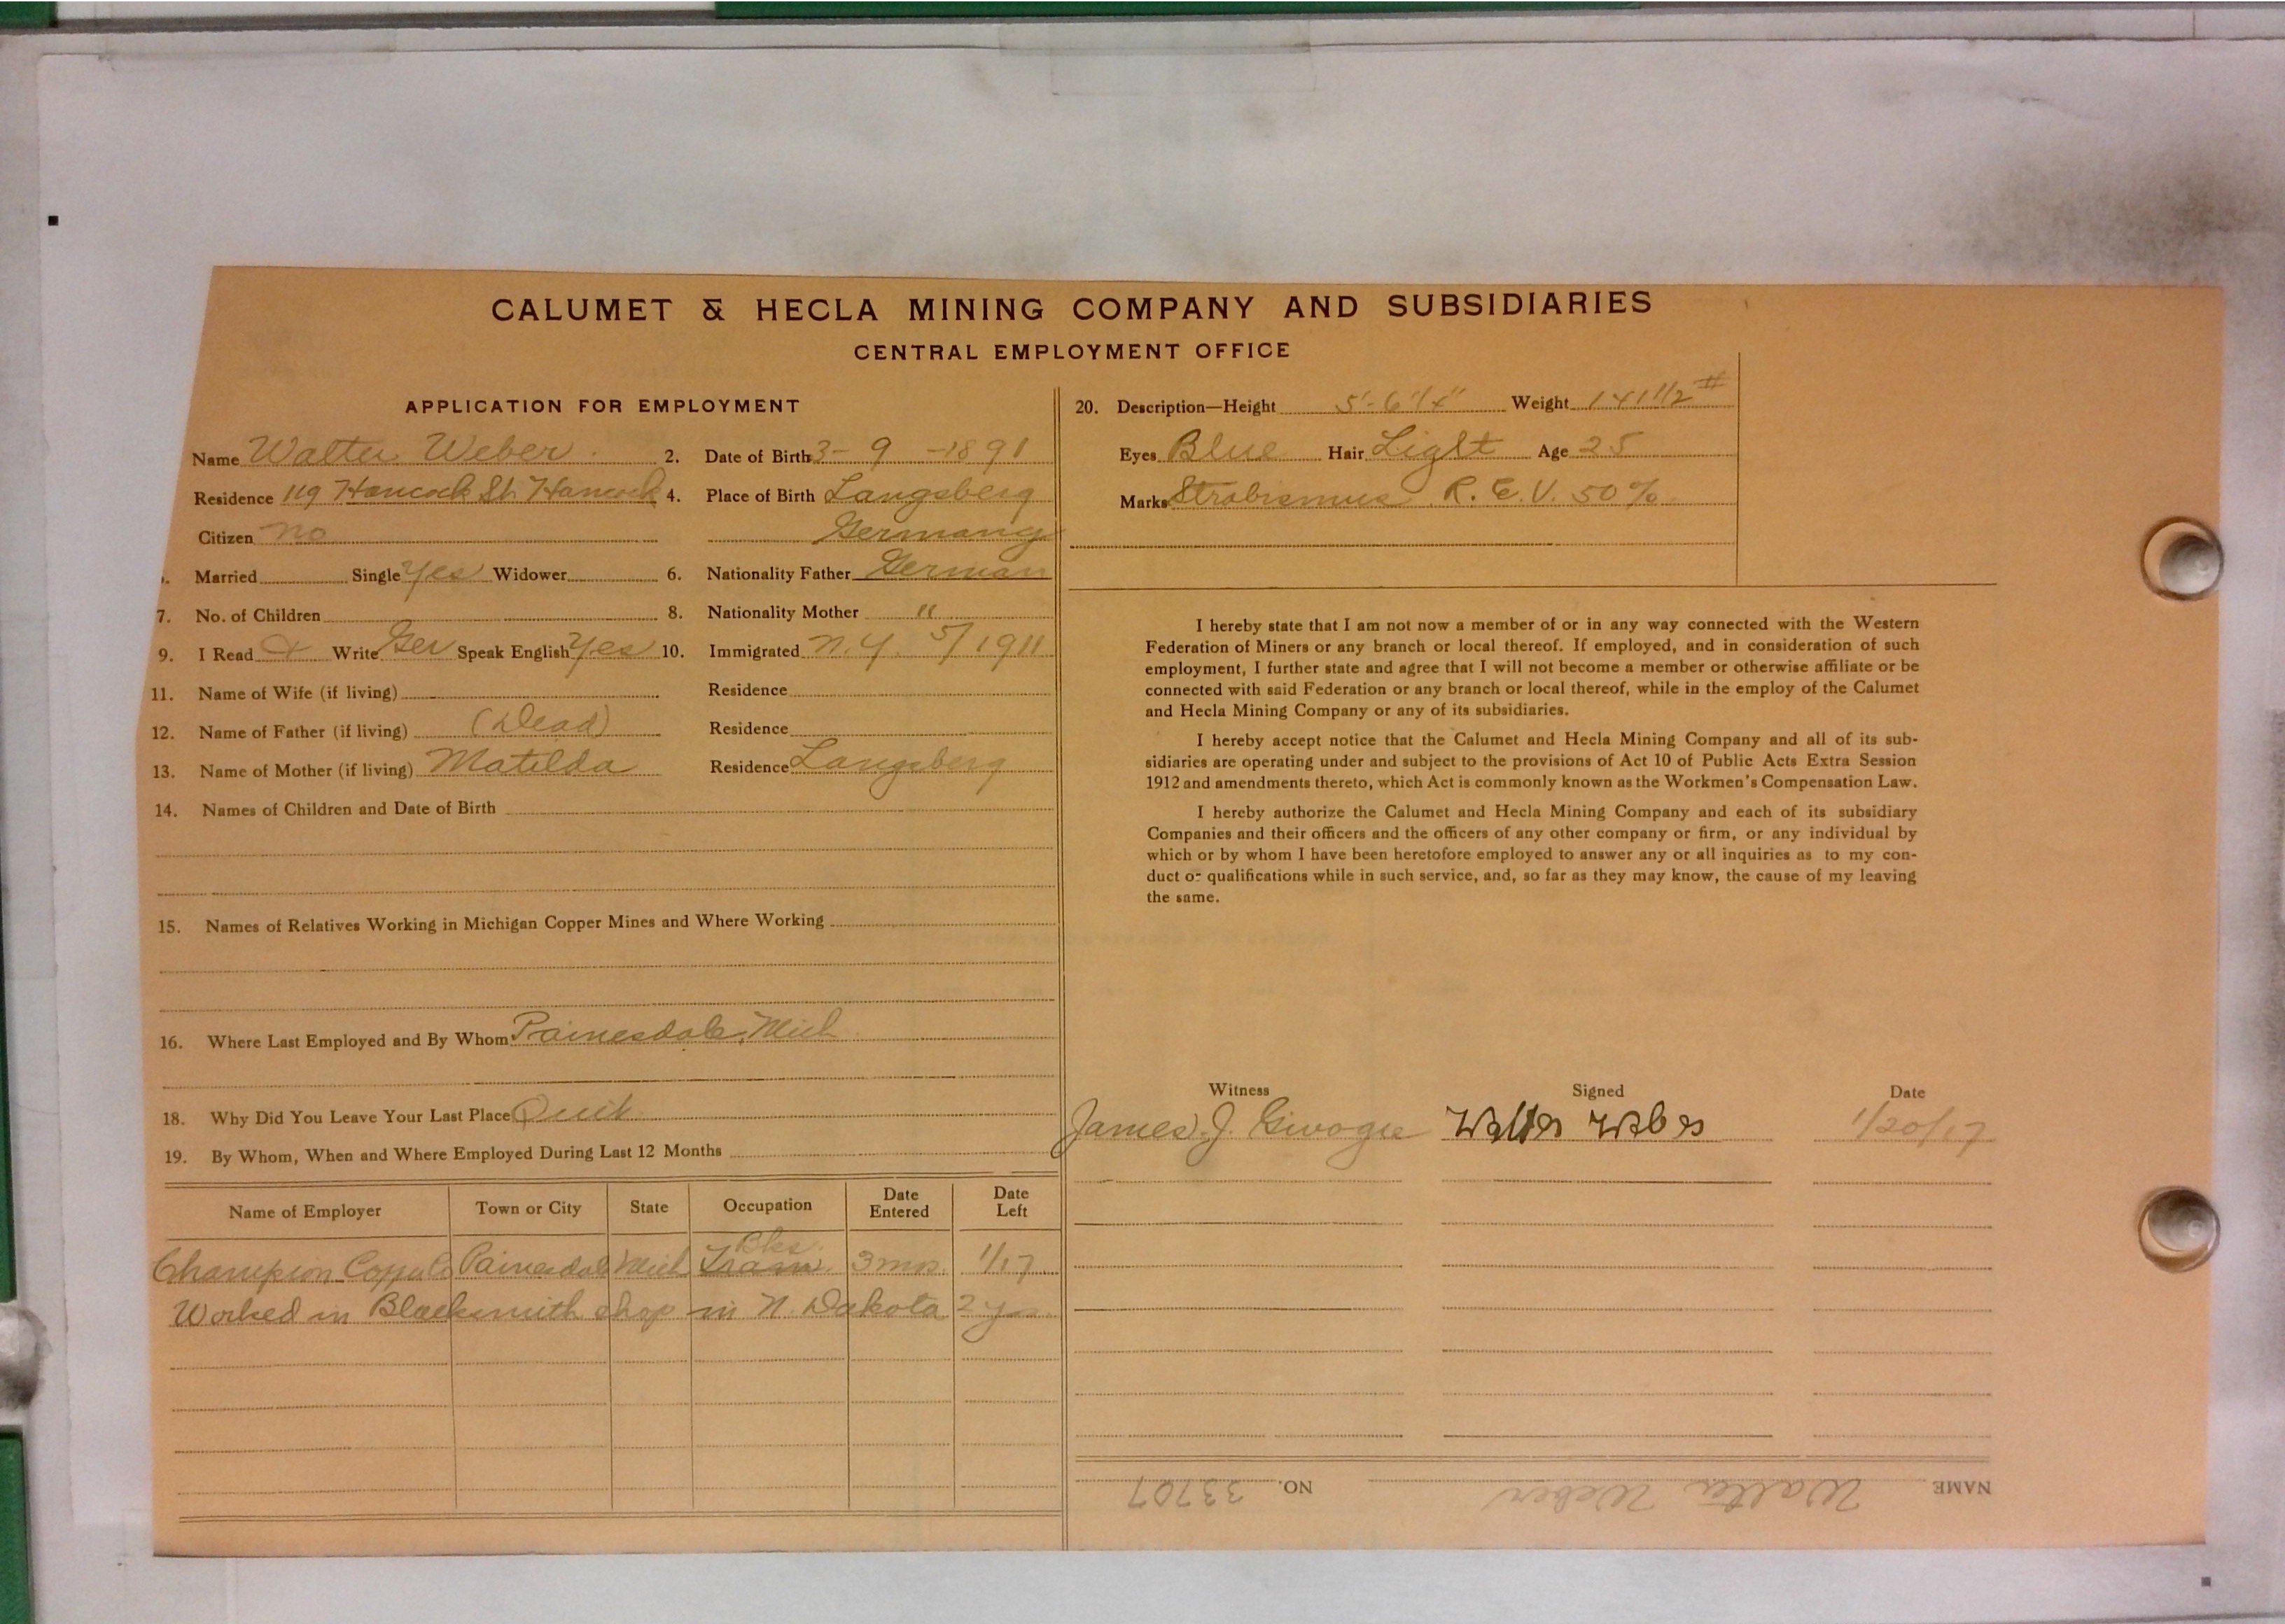 CALUMET & HECLA MINING COMPANY AND SUBSIDIARIES
CENTRAL EMPLOYMENT OFFICE
APPLICATION FOR EMPLOYMENT
Name Walter Weber. 2. Date of Birth 3-9-1891
Residence 119 Hancock St. Hancock 4. Place of Birth Langsberg
Citizen no Germany
Married Single Yes Widower 6. Nationality Father German
7. No. of Children 8. Nationality Mother "
9. I Read & Write Ger Speak English Yes 10. Immigrated N.Y. 5/1911
11. Name of Wife (if living) Residence
12. Name of Father (if living) (Dead) Residence
13. Name of Mother (if living) Matilda Residence Langsberg
14. Names of Children and Date of Birth
15. Names of Relatives Working in Michigan Copper Mines and Where Working
16. Where Last Employed and By Whom Painesdale, Mich
18. Why Did You Leave Your Last Place Quit
19. By Whom, When and Where Employed During Last 12 Months
Name of Employer Town or City State Occupation Date Entered Date Left
Bks.
Champion Copper Co Painesdale Mich Tram. 3 mos. 1/17
Worked in Blacksmith shop in N. Dakota 2 yrs.
20. Description—Height 5'-6 1/4" Weight 141 1/2 #
Eyes Blue Hair Light Age 25
Marks Strabismus R.E.V. 50%
I hereby state that I am not now a member of or in any way connected with the Western
Federation of Miners or any branch or local thereof. If employed, and in consideration of such
employment, I further state and agree that I will not become a member or otherwise affiliate or be
connected with said Federation or any branch or local thereof, while in the employ of the Calumet
and Hecla Mining Company or any of its subsidiaries.
I hereby accept notice that the Calumet and Hecla Mining Company and all of its sub-
sidiaries are operating under and subject to the provisions of Act 10 of Public Acts Extra Session
1912 and amendments thereto, which Act is commonly known as the Workmen's Compensation Law.
I hereby authorize the Calumet and Hecla Mining Company and each of its subsidiary
Companies and their officers and the officers of any other company or firm, or any individual by
which or by whom I have been heretofore employed to answer any or all inquiries as to my con-
duct or qualifications while in such service, and, so far as they may know, the cause of my leaving
the same.
Witness Signed Date
James J. Walter Weber 1/20/17
NAME Walter Weber NO. 33707